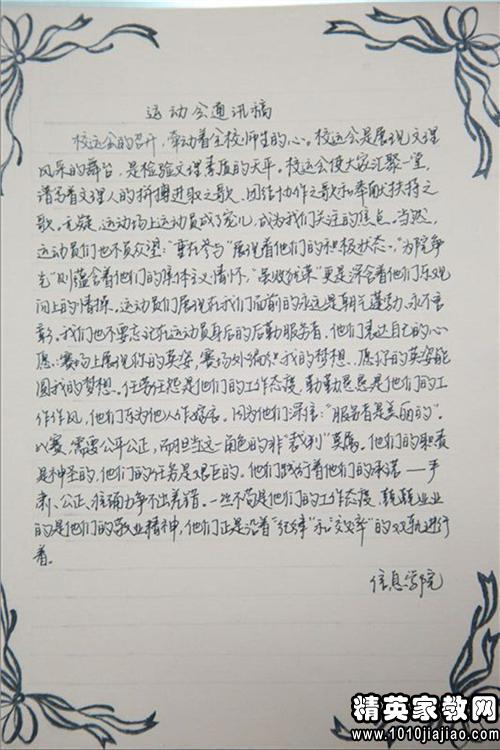 运动会通讯稿
校运会的召开，牵动着全校师生的心。校运会是展现文理
风采的舞台，是检验文理素质的天平。校运会使大家汇聚一堂，
谱写着文理人的拼搏进取之歌、团结协作之歌和奉献扶持之
歌。无疑，运动场上运动员成了宠儿，成为我们关注的焦点。当然，
运动员们也不负众望："重在参与"展现着他们的积极状态。"为院争
光"则蕴含着他们的集体主义情怀，"虽败犹荣"更是深含着他们乐观
向上的情操。运动员们展现在我们面前的永远是朝气蓬勃、永不言
彰。我们也不要忘记在运动员身后的后勤服务者，他们表达自己的心
愿：赛场上展现你的英姿，赛场外编织我的梦想、愿你的英姿能
圆我的梦想。任劳任怨是他们的工作态度，勤勤恳恳是他们的工
作作风，他们乐为他人作嫁衣。因为他们深信："服务者是美丽的"。
比赛，需要公平公正，而担当这一角色的非"裁判"莫属。他们的职责
是神圣的，他们的任务是艰巨的。他们践行着他们的承诺——严
肃、公正、准确力争不出差错。一丝不苟是他们的工作态度，兢兢业业
的是他们的敬业精神，他们正是沿着"纪律"和"效率"的双轨进行
着。
信息学院
精英家教网
www.1010jiajiao.com